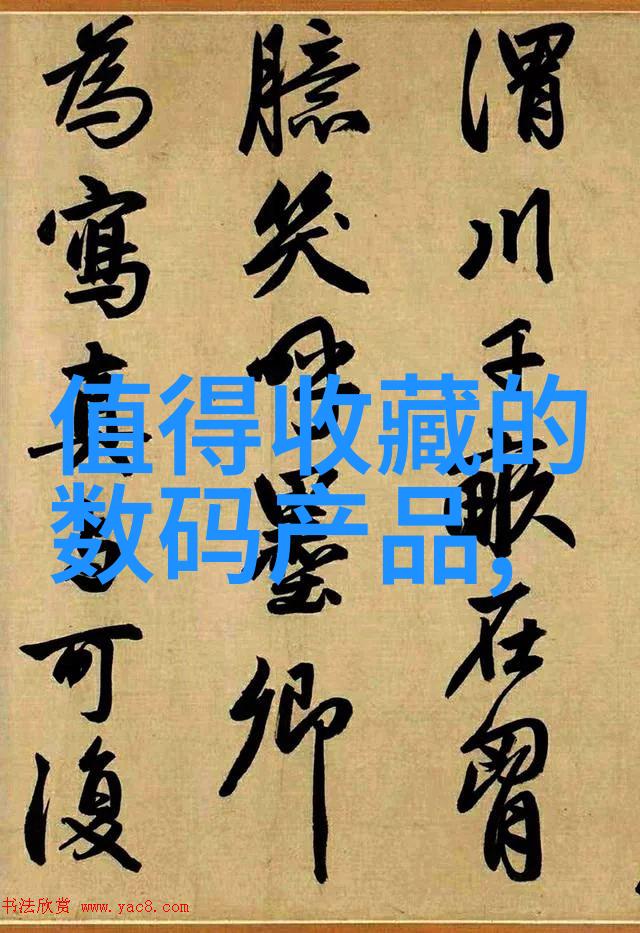 渭川千畝在胷
臆笑呼墨卿
為寫真可復
值得收藏的
数码产品,
书法欣赏 www.yac8.com